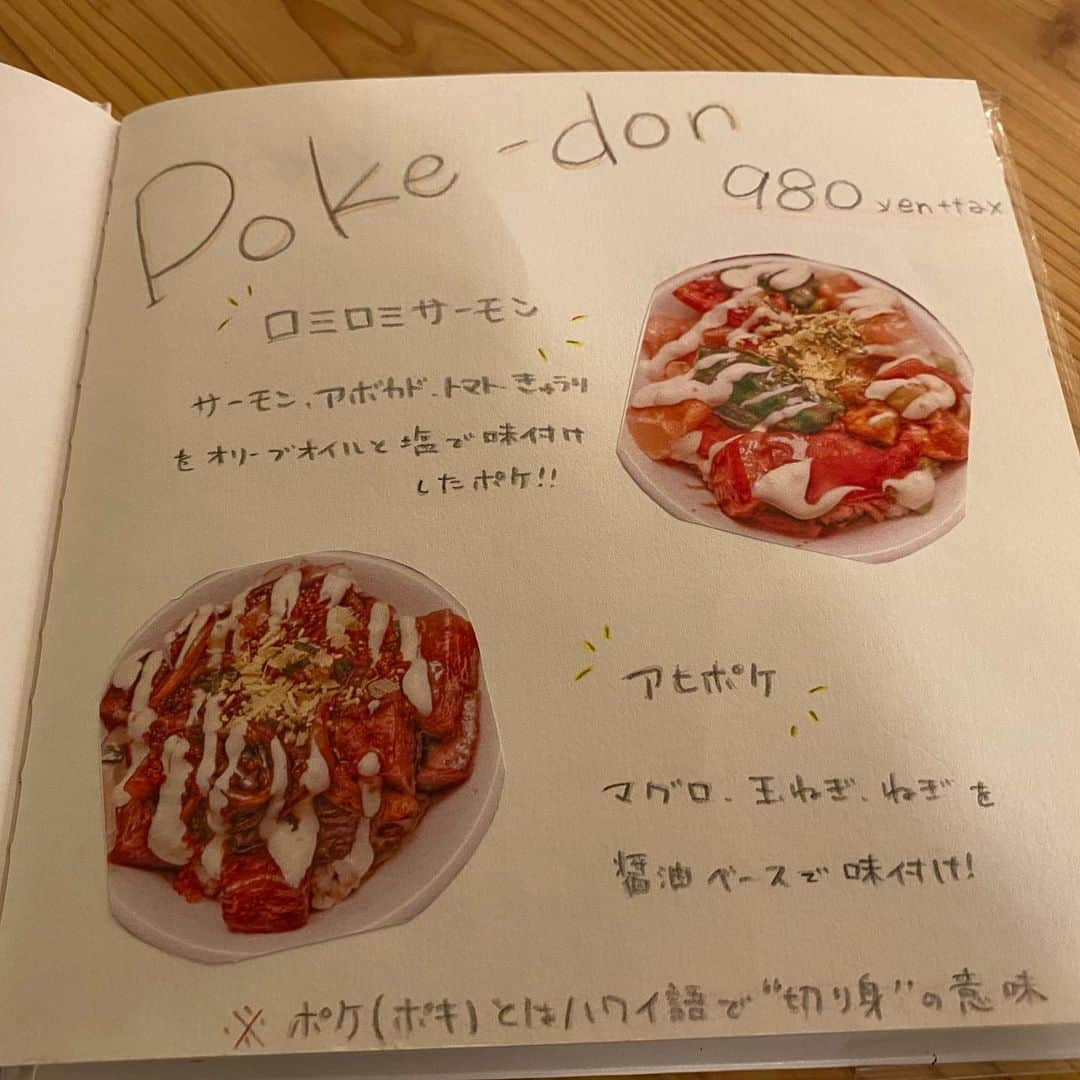 Poke-don
980 yen+tax
ロミロミサーモン
サーモン、アボカド、トマト きゅうり
をオリーブオイルと塩で味付け
したポケ!!
アヒポケ
マグロ、玉ねぎ、ねぎを
醤油ベースで味付け!
※ ポケ(ポキ)とはハワイ語で“切り身”の意味